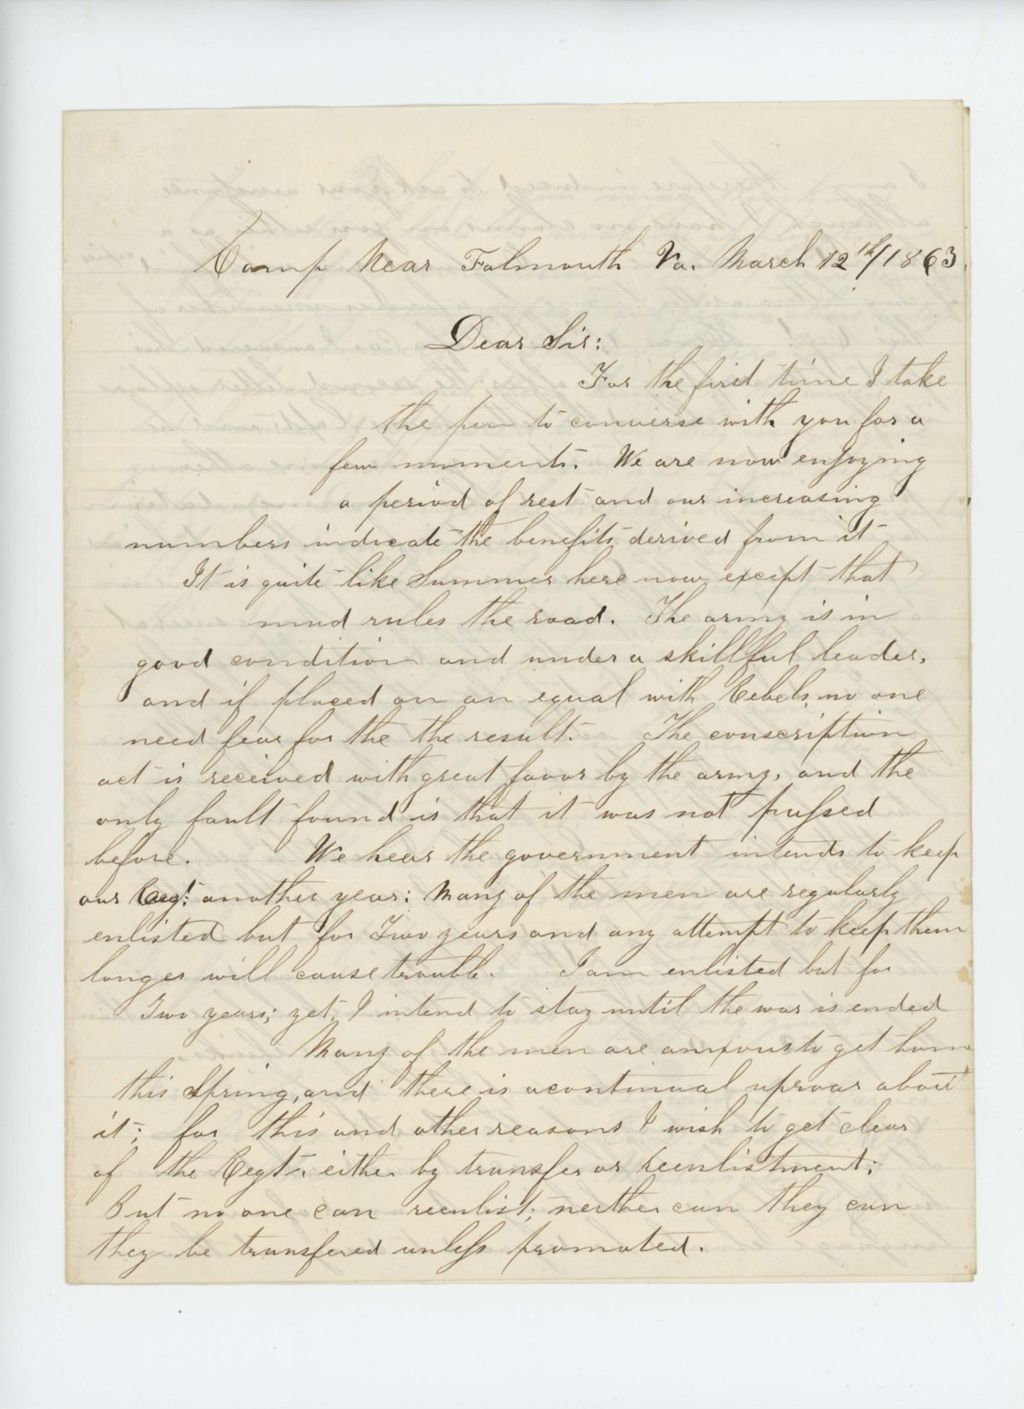 Camp Near Falmouth Va. March 12th/1863.
Dear Sir:
For the first time I take
the pen to converse with you for a
few moments. We are now enjoying
a period of rest and our increasing
numbers indicate the benefits derived from it
It is quite like Summer here now except that
mud rules the road. The army is in
good condition and under a skillful leader,
and if placed on an equal with Rebels, no one
need fear for the the result. The conscription
act is received with great favor by the army, and the
only fault found is that it was not passed
before. We hear the government intends to keep
our Regt. another year: Many of the men are regularly
enlisted but for Two years and any attempt to keep them
longer will cause trouble. I am enlisted but for
Two years; yet, I intend to stay until the war is ended
Many of the men are anxious to get home
this Spring, and there is a continual uproar about
it; for this and other reasons I wish to get clear
of the Regt. either by transfer or reenlistment;
But no one can reenlist; neither can they can
they be transfered unless promoted.